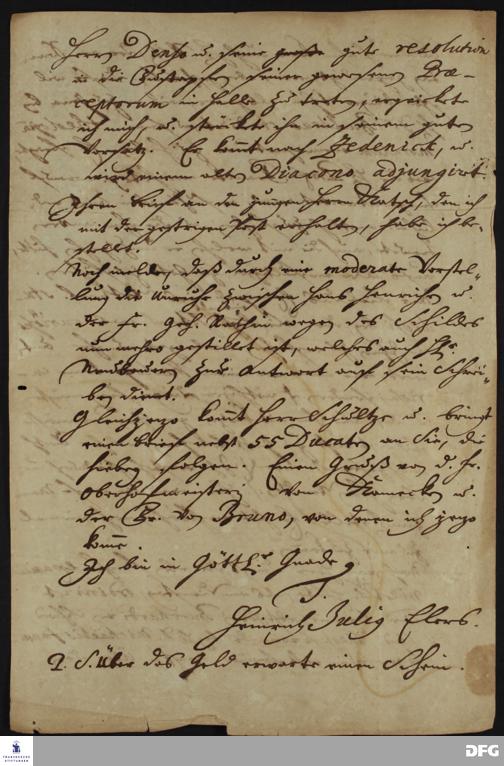 Herrn Denso u. seine große gute resolution
in die Fußstapfen seiner gewesenen Præ-
ceptorum in Halle zu treten, erquickete
ich mich, u. stärckete ihn in seinem guten
Vorsatz. Er komt nach Zedenick, u.
wird einem alten Diacono adjungirt.
Ihren brief an den jungen Herrn Matsch, den ich
mit der gestrigen Post erhalten, habe ich be-
stellt.
Noch melde, daß durch eine moderate Vorstel-
lung die Unruhe zwischen Hans Henrichen u.
der Fr. Geh. Räthin wegen des Schildes
nun mehro gestillet ist, welches auch H.
Neubauern zur Antwort auf sein Schrei-
ben dienet.
Gleich jezo komt Herr Schultze u. bringt
einen brief nebst 55 Ducaten an Sie, die
hiebey folgen. Einen Gruß von d. Fr.
Oberhofmeisterin von Kamecken u.
der Fr. von Bruno, von denen ich jezo
komme.
Ich bin in Göttl. Gnade
Heinrich Julig Elers.
P. S. Über das Geld erwarte einen Schein.
FRANCKESCHE STIFTUNGEN
DFG